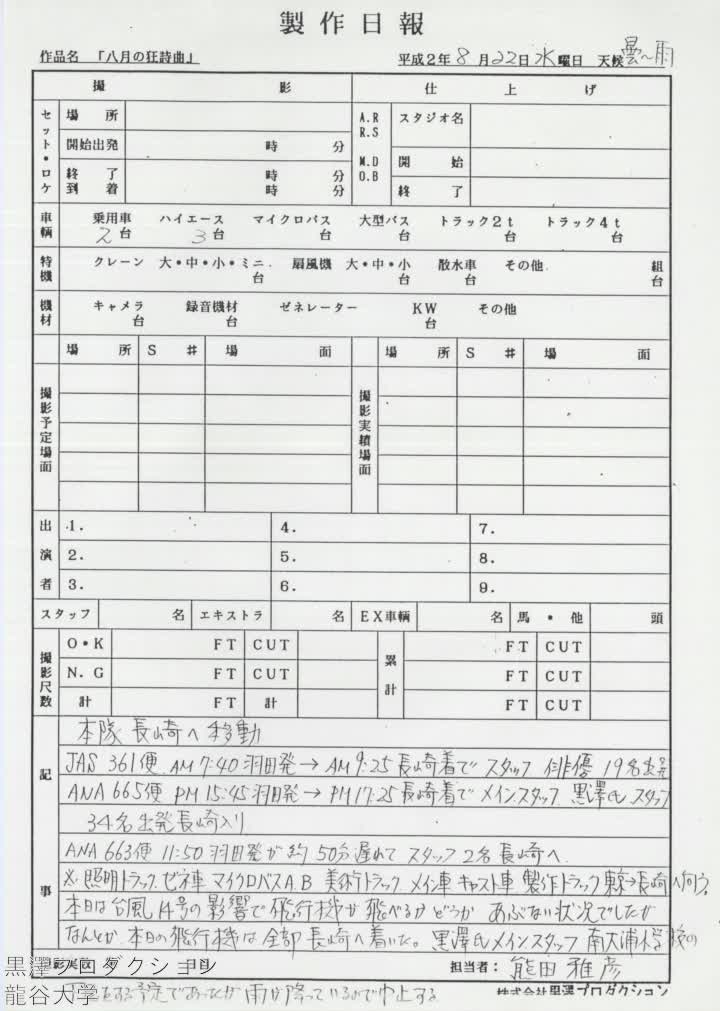 製作日報
作品名 「八月の狂詩曲」 平成2年8月22日水曜日 天候 曇〜雨
撮影 仕上げ
セット・ロケ 場所 A.R R.S M.D O.B スタジオ名
開始出発 時 分 開始
終了到着 時 分 時 分 終了
車輌 乗用車 2台 ハイエース 3台 マイクロバス 台 大型バス 台 トラック2t 台 トラック4t 台
特機 クレーン 大・中・小・ミニ 台 扇風機 大・中・小 台 散水車 台 その他 組 台
機材 キャメラ 台 録音機材 台 ゼネレーター KW 台 その他
撮影予定場面 場所 S# 場面 撮影実績場面 場所 S# 場面
出演者 1. 4. 7.
2. 5. 8.
3. 6. 9.
スタッフ 名 エキストラ 名 EX車輌 名 馬・他 頭
撮影尺数 O・K FT CUT 累計 FT CUT
N.G FT CUT FT CUT
計 FT 計 FT CUT
記事
本隊長崎へ移動
JAS 361便 AM 7:40 羽田発→AM 9:25 長崎着で スタッフ 俳優 19名出発
ANA 665便 PM 15:45 羽田発→PM 17:25 長崎着で メインスタッフ 黒澤氏 スタッフ
34名出発長崎入り
ANA 663便 11:50 羽田発が約50分遅れて スタッフ2名長崎へ
※照明トラック ゼネ車 マイクロバスA.B 美術トラック メイン車 キャスト車 製作トラック 東京→長崎へ向う。
本日は台風14号の影響で飛行機が飛べるかどうか あぶない状況でしたが
なんとか本日の飛行機は全部長崎へ着いた。黒澤氏メインスタッフ 南大浦小学校の
担当者: 熊田雅彦
をする予定であったが雨が降っているので中止する
株式会社黒澤プロダクション
黒澤プロダクション
龍谷大学